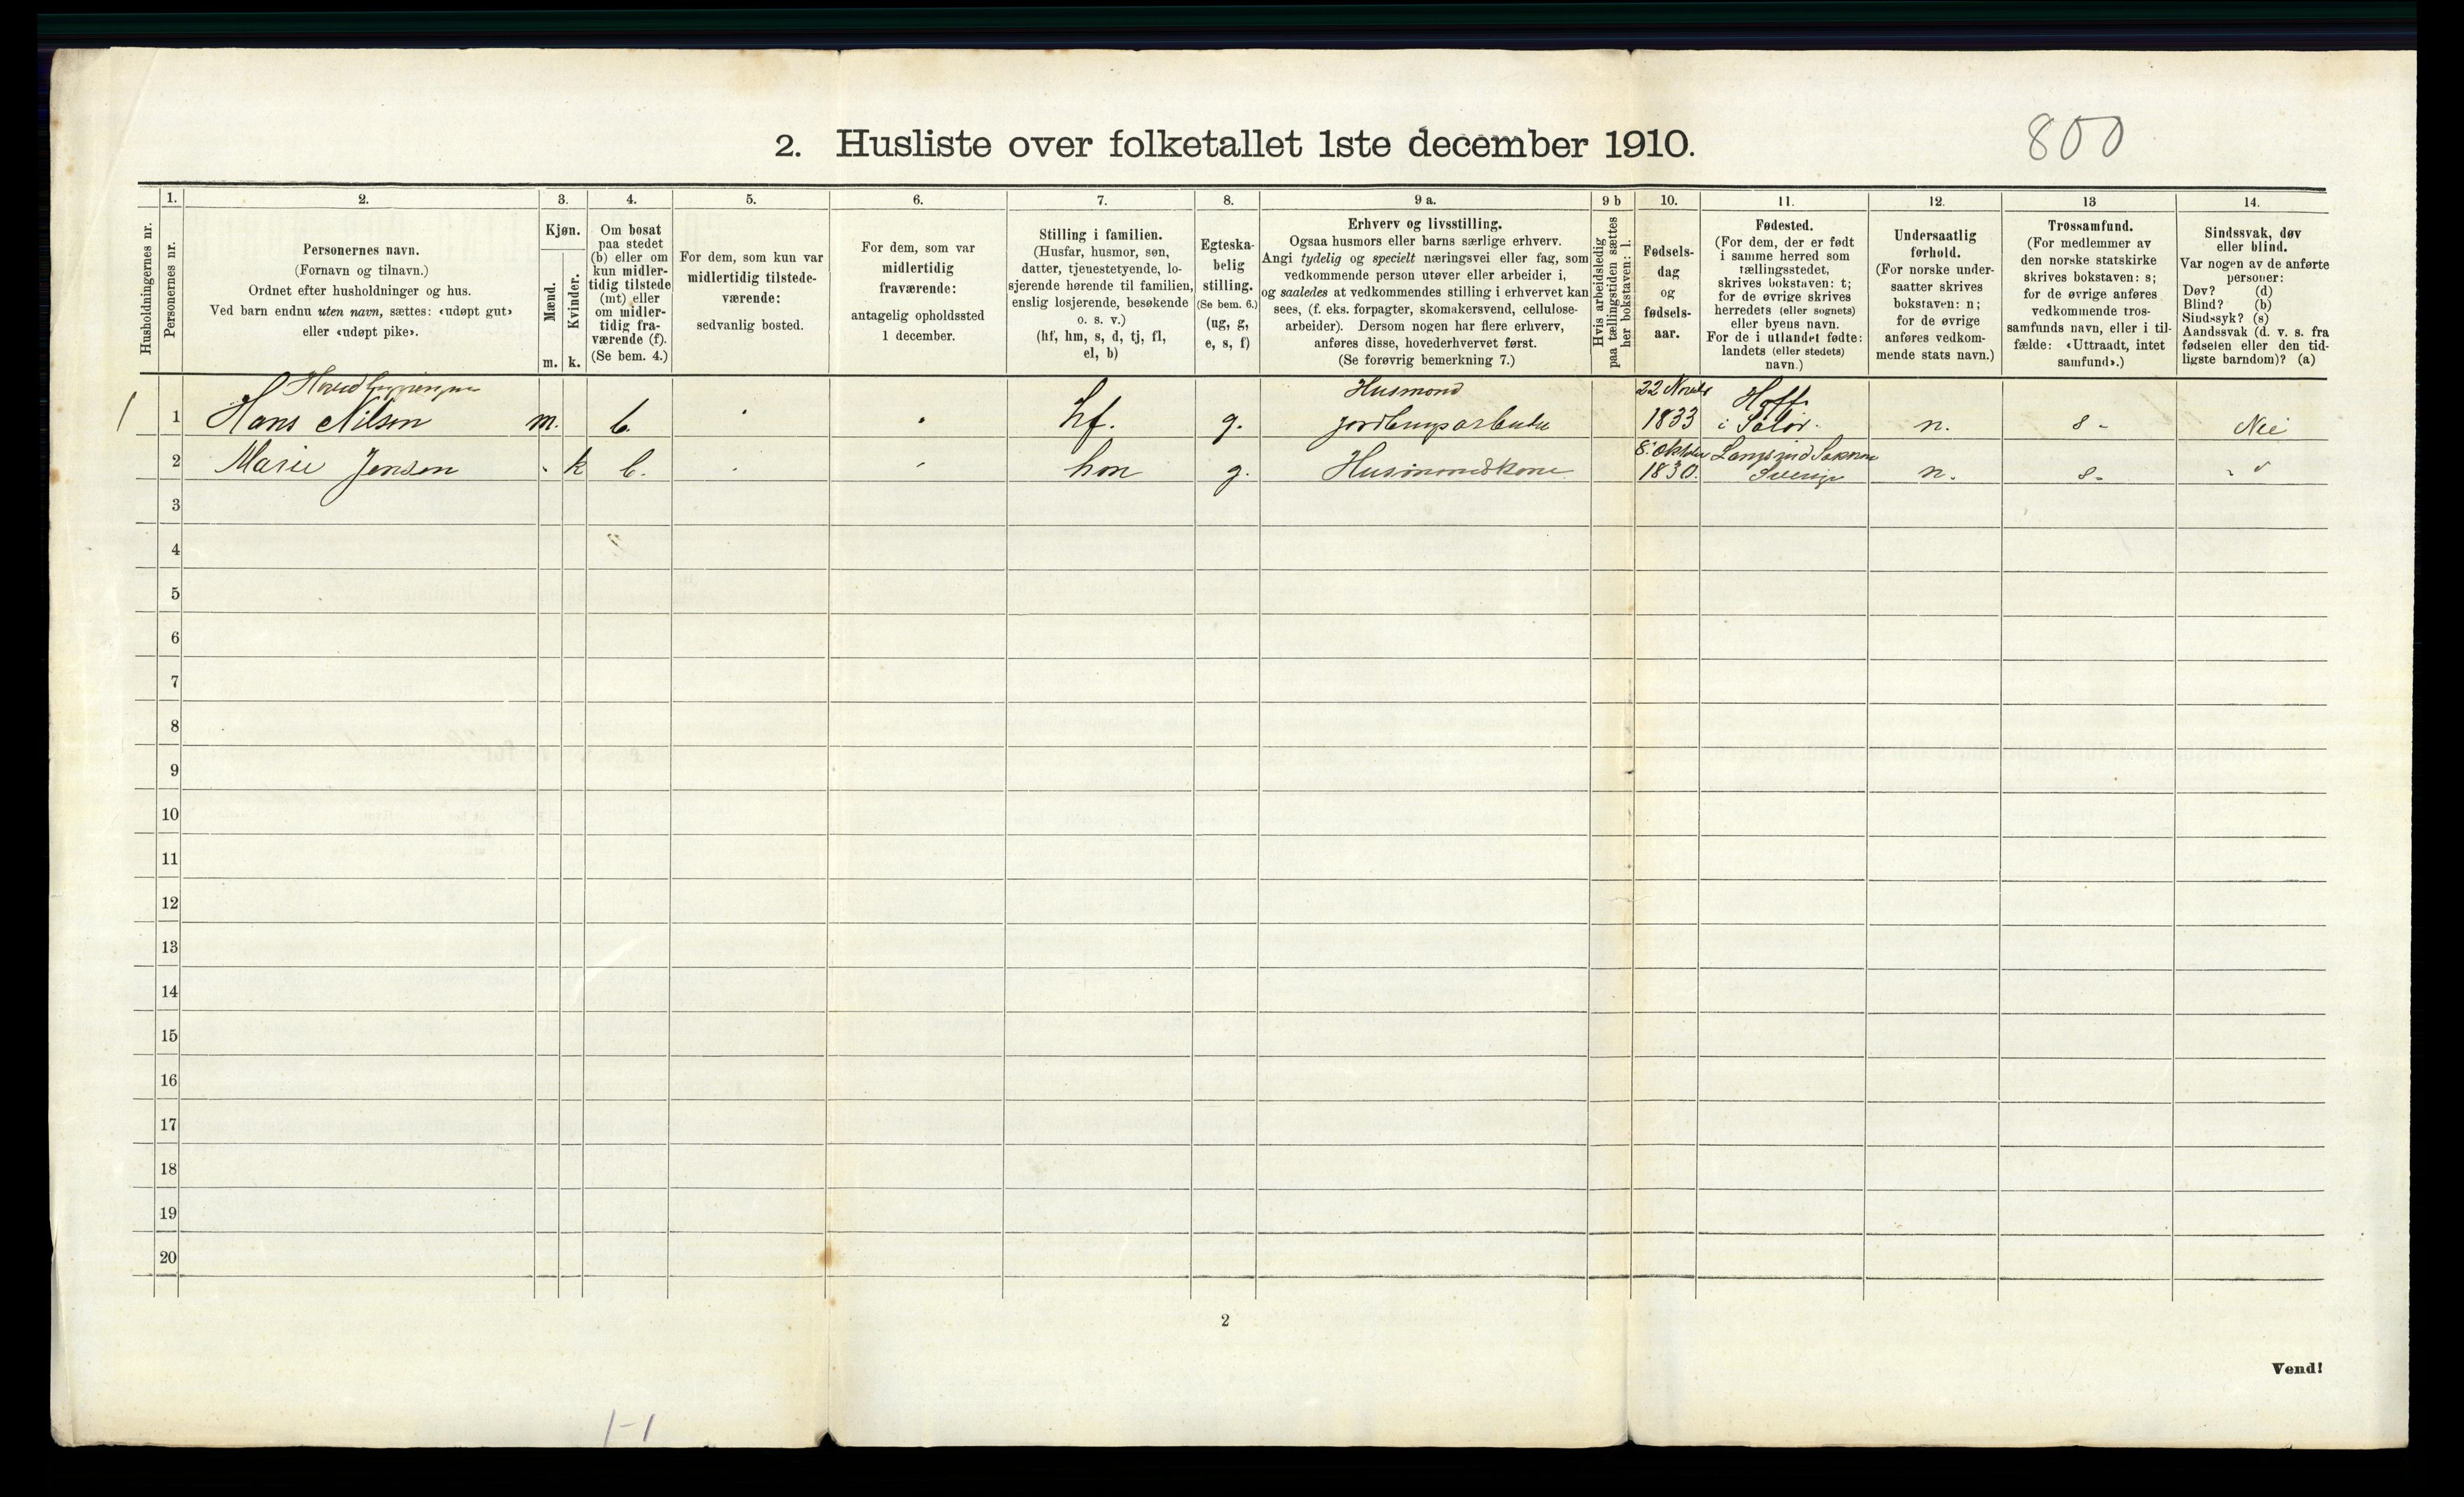 2. Husliste over folketallet 1ste december 1910.
800
Husholdningernes nr.
1.
Personernes nr.
2.
Personernes navn.
(Fornavn og tilnavn.)
Ordnet efter husholdninger og hus.
Ved barn endnu uten navn, sættes: «udøpt gut»
eller «udøpt pike».
3.
Kjøn.
Mænd.
m.
Kvinder.
k.
4.
Om bosat
paa stedet
(b) eller om
kun midler-
tidig tilstede
(mt) eller
om midler-
tidig fra-
værende (f).
(Se bem. 4.)
5.
For dem, som kun var
midlertidig tilstede-
værende:
sedvanlig bosted.
6.
For dem, som var
midlertidig
fraværende:
antagelig opholdssted
1 december.
7.
Stilling i familien.
(Husfar, husmor, søn,
datter, tjenestetyende, lo-
sjerende hørende til familien,
enslig losjerende, besøkende
o. s. v.)
(hf, hm, s, d, tj, fl,
el, b)
8.
Egteska-
belig
stilling.
(Se bem. 6.)
(ug, g,
e, s, f)
9 a.
Erhverv og livsstilling.
Ogsaa husmors eller barns særlige erhverv.
Angi tydelig og specielt næringsvei eller fag, som
vedkommende person utøver eller arbeider i,
og saaledes at vedkommendes stilling i erhvervet kan
sees, (f. eks. forpagter, skomakersvend, cellulose-
arbeider). Dersom nogen har flere erhverv,
anføres disse, hovederhvervet først.
(Se forøvrig bemerkning 7.)
9 b
Hvis arbeidsledig
paa tællingstiden sættes
her bokstaven: l.
10.
Fødsels-
dag
og
fødsels-
aar.
11.
Fødested.
(For dem, der er født
i samme herred som
tællingsstedet,
skrives bokstaven: t;
for de øvrige skrives
herredets (eller sognets)
eller byens navn.
For de i utlandet fødte:
landets (eller stedets)
navn.)
12.
Undersaatlig
forhold.
(For norske under-
saatter skrives
bokstaven: n;
for de øvrige
anføres vedkom-
mende stats navn.)
13
Trossamfund.
(For medlemmer av
den norske statskirke
skrives bokstaven: s;
for de øvrige anføres
vedkommende tros-
samfunds navn, eller i til-
fælde: «Uttraadt, intet
samfund».)
14.
Sindssvak, døv
eller blind.
Var nogen av de anførte
personer:
Døv? (d)
Blind? (b)
Sindssyk? (s)
Aandssvak (d. v. s. fra
fødselen eller den tid-
ligste barndom)? (a)
Husmond 22 Novbr Hoff
1 1 Hans Nilsen m. b. hf. g. 1833 i Solør. n. s - Nei
8. oktober
2 Marie Jensen k b. hm g. Husmondskone 1830. Sverige n. s-
3
4
5
6
7
8
9
10
11
12
13
14
15
16
17
18
19
20
2
Vend!
1-1